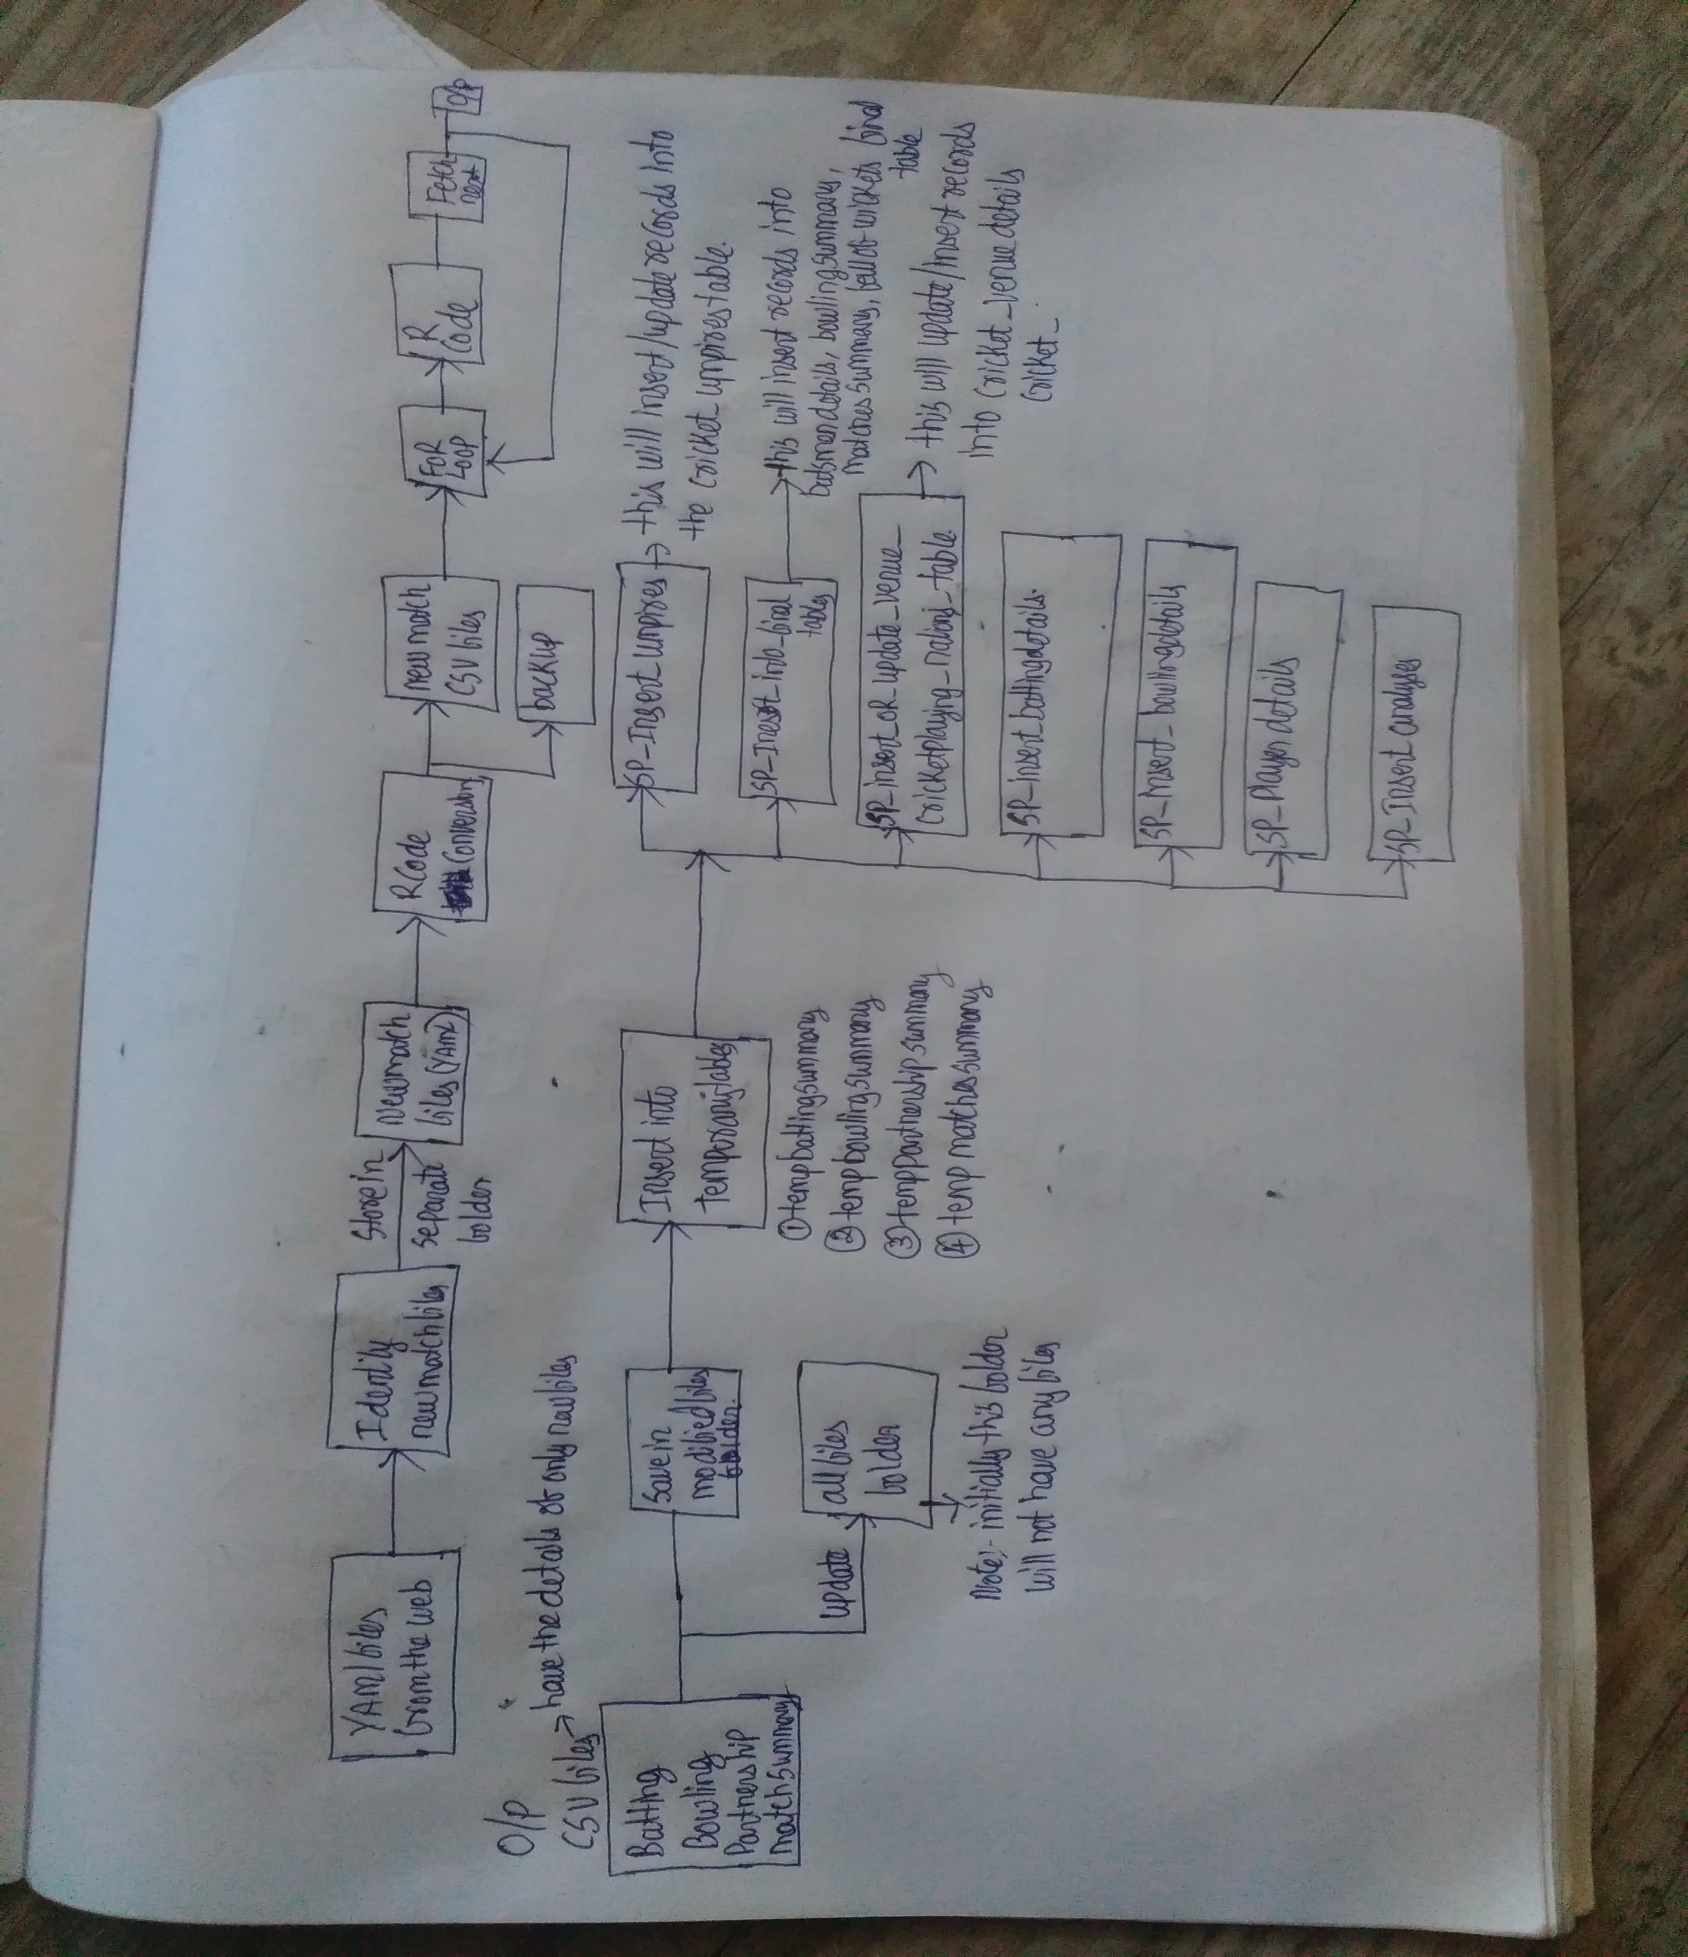 YAMl files
from the web
Identify
new match files
Store in
separate
folder
New match
files (YAML)
R Code
Conversion
new match
CSV files
backup
FOR
LOOP
R
Code
Fetch
next
O/P
O/P
CSV files → have the details of only new files
Batting
Bowling
Partnership
match summary
Save in
modified files
folder.
update
all files
folder
Note:- initially this folder
will not have any files
Insert into
temporary tables
① temp batting summary
② temp bowling summary
③ temp partnership summary
④ temp matches summary
SP-Insert_umpires
→ this will insert/update records into
the cricket_umpires table.
SP-Insert_into_final
tables
this will insert records into
batsman details, bowling summary,
matches summary, fall of wickets final
table
SP_insert_OR_update_venue_
cricketplaying_nations_table.
→ this will update/insert records
into cricket_venue details
cricket_
SP-insert_battingdetails.
SP-Insert_bowlingdetails
SP_Player details
SP-Insert analyses